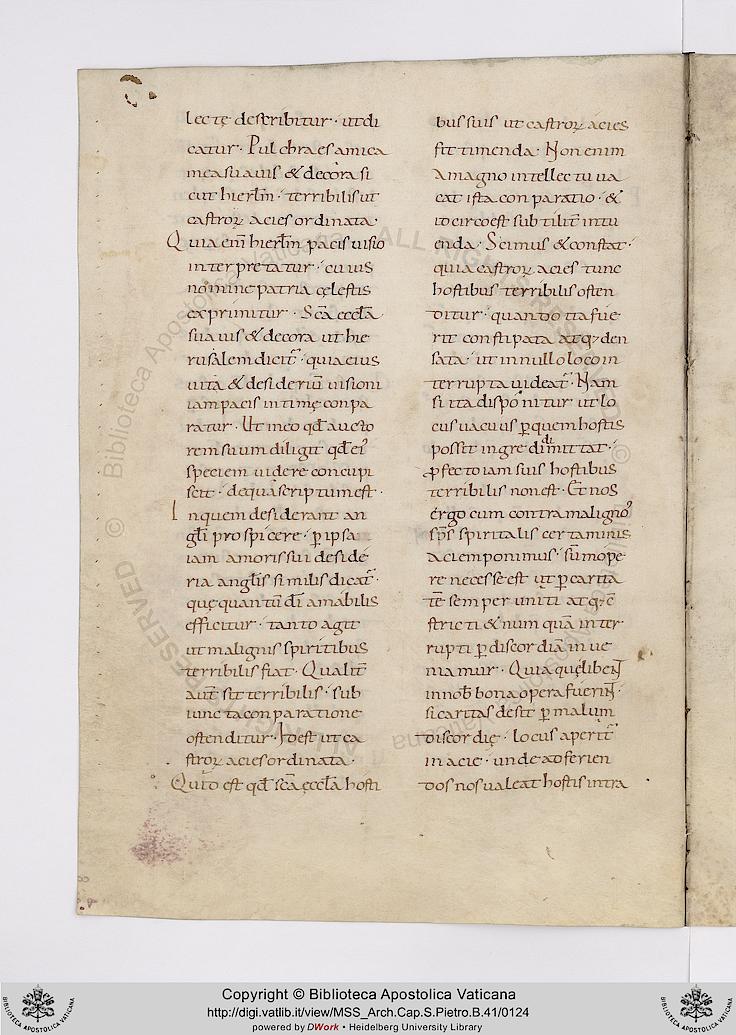 lectę describitur · ut di
catur · Pulchra es amica
mea suauis & decora si
cut hierłm · terribilis ut
castroꝝ acies ordinata ·
Quia eni̅ hierłm pacis uisio
interpretatur · cuius
nomine patria cęlestis
exprimitur · Sc̅a eccła
suauis & decora ut hie
rusalem dicit̅ · quia eius
uita & desideriu̅ uisioni
iam pacis intimę conpa
ratur · Ut in eo qd̅ aucto
rem suum diligit qd̅ ei᾽
speciem uidere concupi
scit · de qua scriptum est ·
In quem desiderant an
głi prospicere · ꝑ ipsa
iam amoris sui deside
ria angłis similis dicat̅ ·
quę quantu̅ d̅i amabilis
efficitur · tanto agit
ut malignis spiritibus
terribilis fiat · Qualit̅
aut̅ sit terribilis · sub
iuncta conparatione
ostenditur · Id est ut ca
stroꝝ acies ordinata ·
Quid est qd̅ sc̅a ęccła hosti
bus suis ut castroꝝ acies
sit timenda · Non enim
a magno intellectu ua
cat ista conparatio · &
idcirco est subtilit̅ intu
enda · Scimus & constat ·
quia castroꝝ acies tunc
hostibus terribilis osten
ditur · quando ita fue
rit constipata atq; den
sata · ut in nullo loco in
terrupta uideat̅ · Nam
si ita disponitur ut lo
cus uacuus ꝑ quem hostis
possit ingredi dimittat̅ ·
ꝓfecto iam suis hostibus
terribilis non est · Et nos
ergo cum contra maligno᾽
sp̅s spiritalis certaminis
aciem ponimus · su̅mope
re necesse est ut ꝑ carita
te̅ semper uniti atq; c̅
stricti & numquā inter
rupti ꝑ discordiā inue
niamur · Quia quęlibet
in nob̅ bona opera fuerint ·
si caritas desit ꝑ malum
discordię · locus aperit̅
in acie · unde ad ferien
dos nos ualeat hostis intra
Copyright © Biblioteca Apostolica Vaticana
http://digi.vatlib.it/view/MSS_Arch.Cap.S.Pietro.B.41/0124
powered by DWork • Heidelberg University Library